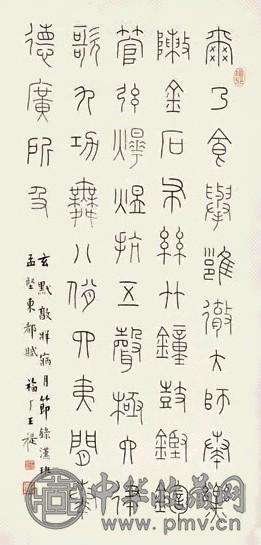 爾乃食舉雝徹大師奏樂
敶金石布絲竹鐘鼓鏗鍧
管弦燁煜抗五聲極六律
歌九功舞八佾四夷間奏
德廣所及
玄黓敦牂病月節錄漢班
孟堅東都賦 福厂王禔
中华收藏网
www.pmv.cn